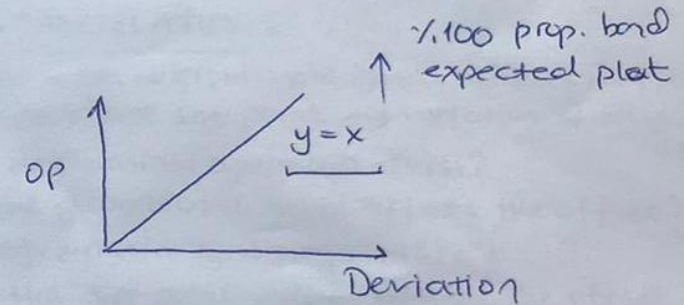 %100 prop. band
expected plot
y=x
OP
Deviation